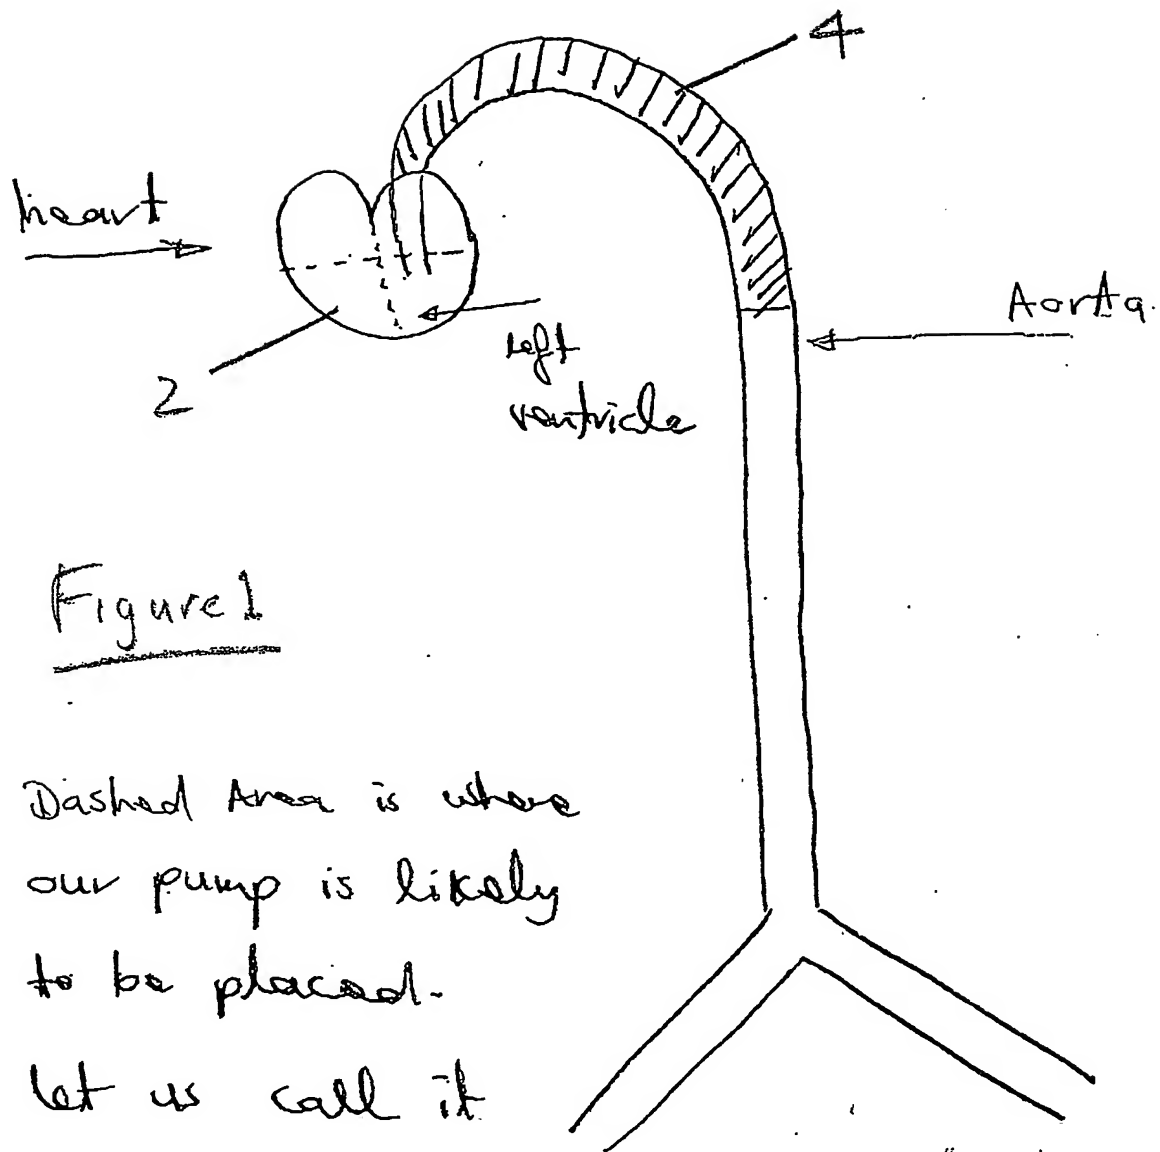 4
heart
Aorta.
left
ventricle
2
Figure 1
Dashed Area is where
our pump is likely
to be placed.
Let us call it